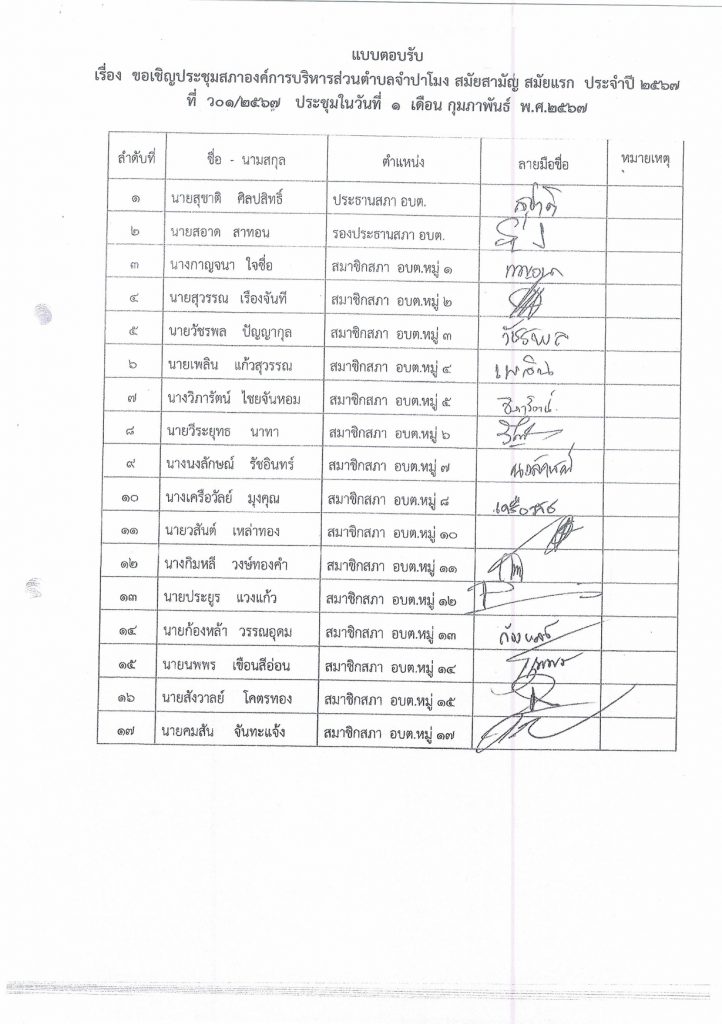 แบบตอบรับ
เรื่อง ขอเชิญประชุมสภาองค์การบริหารส่วนตำบลจำปาโมง สมัยสามัญ สมัยแรก ประจำปี ๒๕๖๗
ที่ ว๐๑/๒๕๖๗ ประชุมในวันที่ ๑ เดือน กุมภาพันธ์ พ.ศ.๒๕๖๗
ลำดับที่ ชื่อ - นามสกุล ตำแหน่ง ลายมือชื่อ หมายเหตุ
๑ นายสุขาติ ศิลปสิทธิ์ ประธานสภา อบต. สุชาติ
๒ นายสอาด สาทอน รองประธานสภา อบต.
๓ นางกาญจนา ใจซื่อ สมาชิกสภา อบต.หมู่ ๑
๔ นายสุวรรณ เรืองจันที สมาชิกสภา อบต.หมู่ ๒
๕ นายวัชรพล ปัญญากุล สมาชิกสภา อบต.หมู่ ๓ วัชรพล
๖ นายเพลิน แก้วสุวรรณ สมาชิกสภา อบต.หมู่ ๔ เพลิน
๗ นางวิภารัตน์ ไชยจันหอม สมาชิกสภา อบต.หมู่ ๕ วิภารัตน์
๘ นายวีระยุทธ นาทา สมาชิกสภา อบต.หมู่ ๖
๙ นางนงลักษณ์ รัชอินทร์ สมาชิกสภา อบต.หมู่ ๗ นงลักษณ์
๑๐ นางเครือวัลย์ มุงคุณ สมาชิกสภา อบต.หมู่ ๘
๑๑ นายวสันต์ เหล่าทอง สมาชิกสภา อบต.หมู่ ๑๐
๑๒ นางกิมหลี วงษ์ทองคำ สมาชิกสภา อบต.หมู่ ๑๑
๑๓ นายประยูร แวงแก้ว สมาชิกสภา อบต.หมู่ ๑๒
๑๔ นายก้องหล้า วรรณอุดม สมาชิกสภา อบต.หมู่ ๑๓
๑๕ นายนพพร เขือนสีอ่อน สมาชิกสภา อบต.หมู่ ๑๔
๑๖ นายสังวาลย์ โคตรทอง สมาชิกสภา อบต.หมู่ ๑๕
๑๗ นายคมสัน จันทะแจ้ง สมาชิกสภา อบต.หมู่ ๑๗